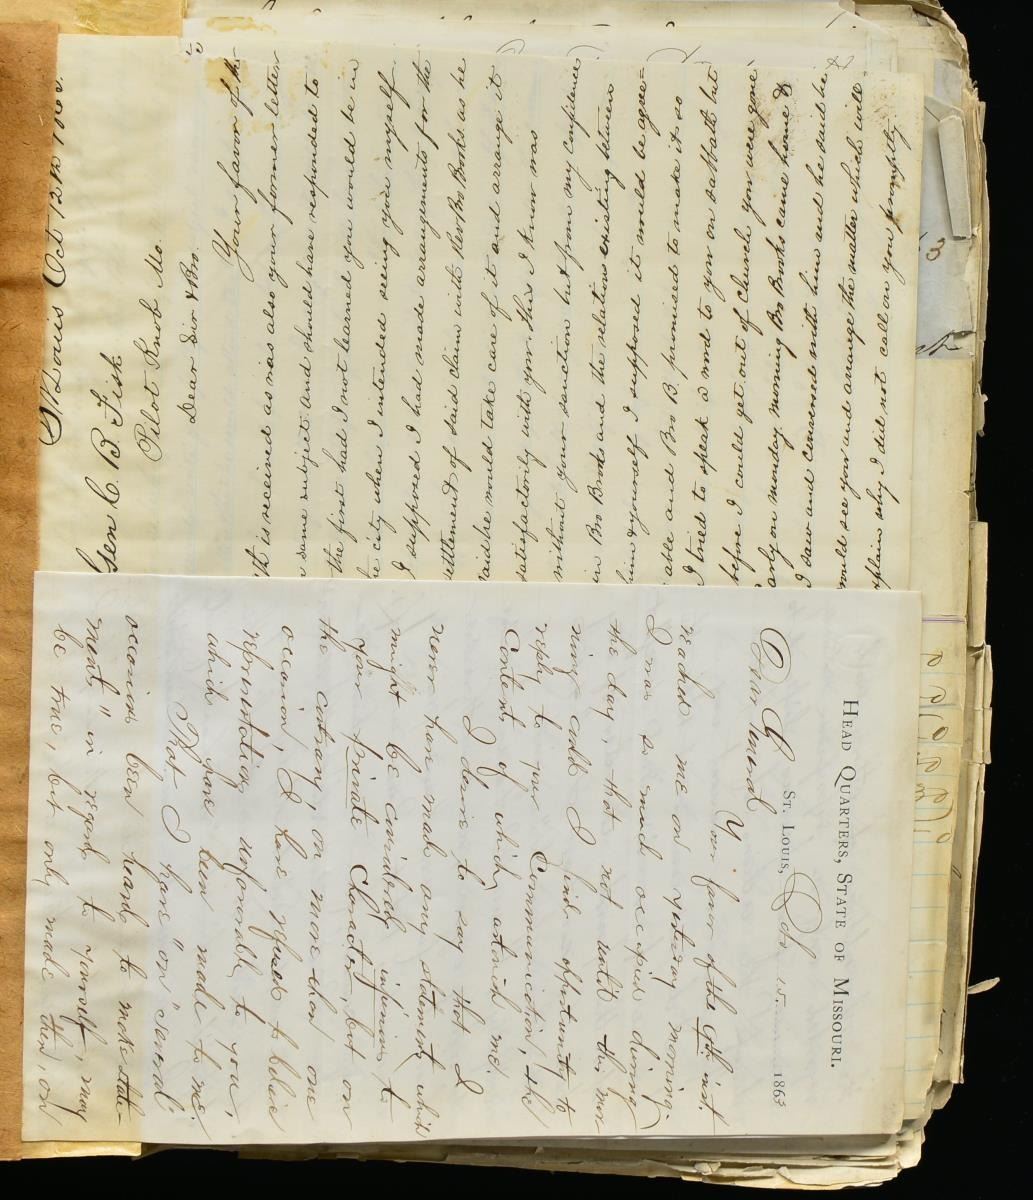 St Louis Oct 12th 1862.
Gen C. B. Fisk
Pilot Knob Mo.
Dear Sir & Bro.
Your favor of the
is received as was also your former letter
same subject and should have responded to
the first had I not learned you would be in
the city when I intended seeing you myself
I supposed I had made arrangements for the
settlement of said claim with Rev Bro Brooks as he
said he would take care of it and arrange it
satisfactorily with you. this I know was
without your sanction but from my confidence
in Bro Brooks and the relations existing between
him & yourself I supposed it would be agree=
able and Bro B. promised to make it so
I tried to speak a word to you on sabbath but
before I could get out of Church you were gone
early on monday morning Bro Brooks came home &
I saw and conversed with him and he said he
would see you and arrange the matter which will
explain why I did not call on you promptly
HEAD QUARTERS, STATE OF MISSOURI.
ST. LOUIS, 15 1863
Dear General
Your favor of the inst.
reached me on yesterday morning.
I was so much occupied during
the day, that not until this mor
ning could I find opportunity to
reply to your Communication, the
Contents of which astonish me.
I desire to say that I
never have made any statements which
might be considered injurious to
your private Character, but on
the contrary, on more than one
occasion, I have refused to believe
representations unfavorable to you,
which have been made to me.
That I have "on several
occasions been heard to make state-
ments" in regard to yourself, may
be true, but only made then, on